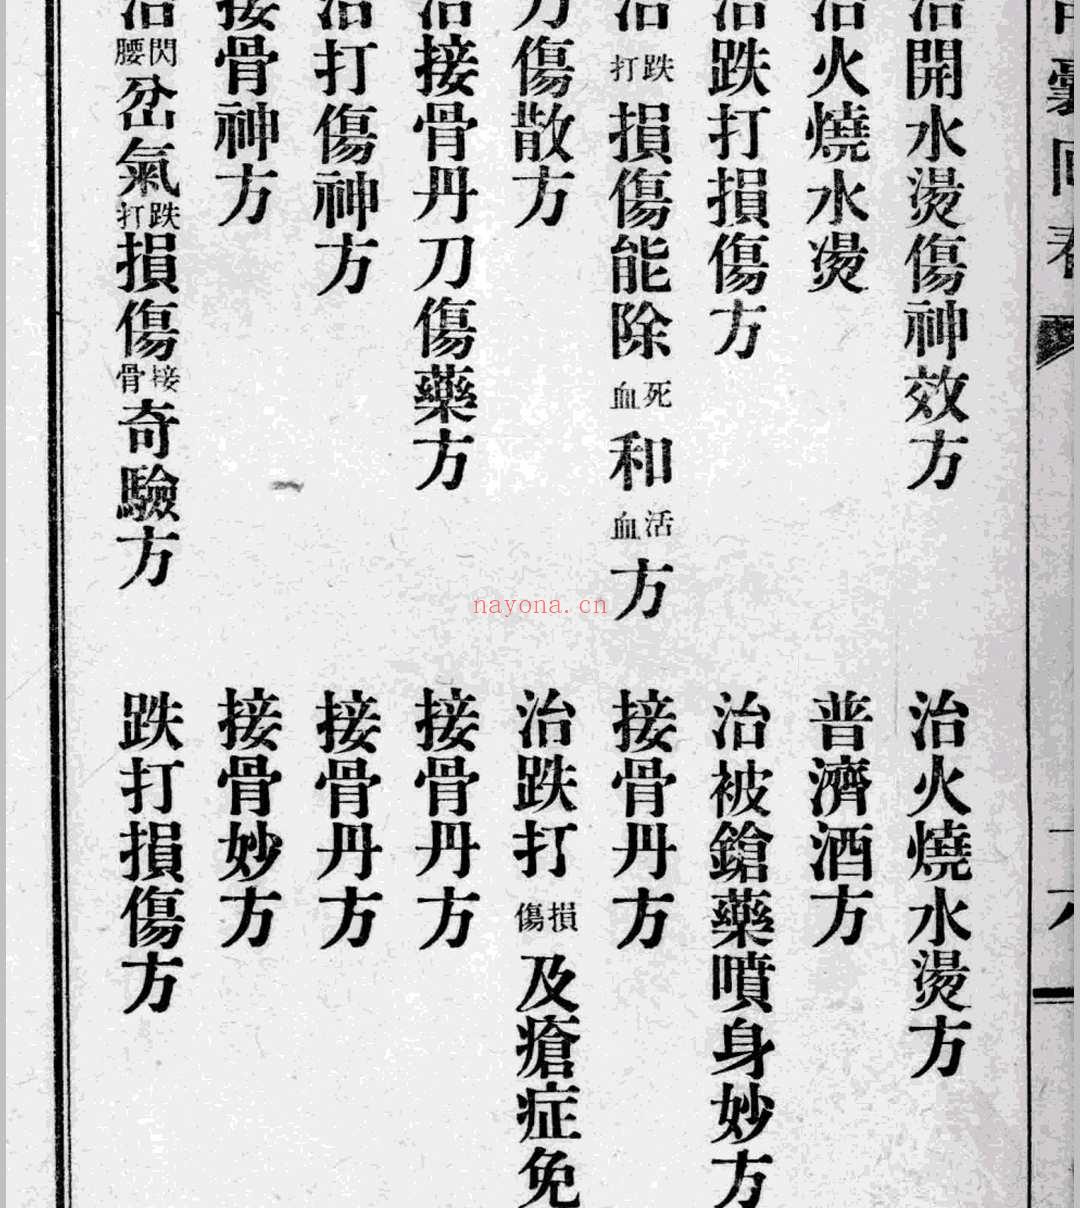 治開水燙傷神效方
治火燒水燙方
治火燒水燙
普濟酒方
治跌打損傷方
治被鎗藥噴身妙方
治跌打損傷能除死血和活血方
接骨丹方
刀傷散方
治跌打損傷及瘡症免
治接骨丹刀傷藥方
接骨丹方
治打傷神方
接骨丹方
接骨神方
接骨妙方
治閃腰岔氣跌打損傷接骨奇驗方
跌打損傷方
nayona.cn